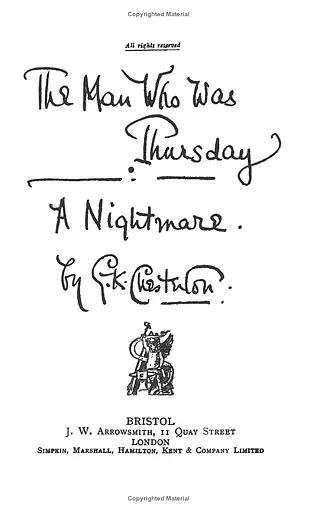 Copyrighted Material
All rights reserved
The Man Who Was
Thursday
A Nightmare.
by G.K. Chesterton.
BRISTOL
J. W. ARROWSMITH, 11 QUAY STREET
LONDON
SIMPKIN, MARSHALL, HAMILTON, KENT & COMPANY LIMITED
Copyrighted Material